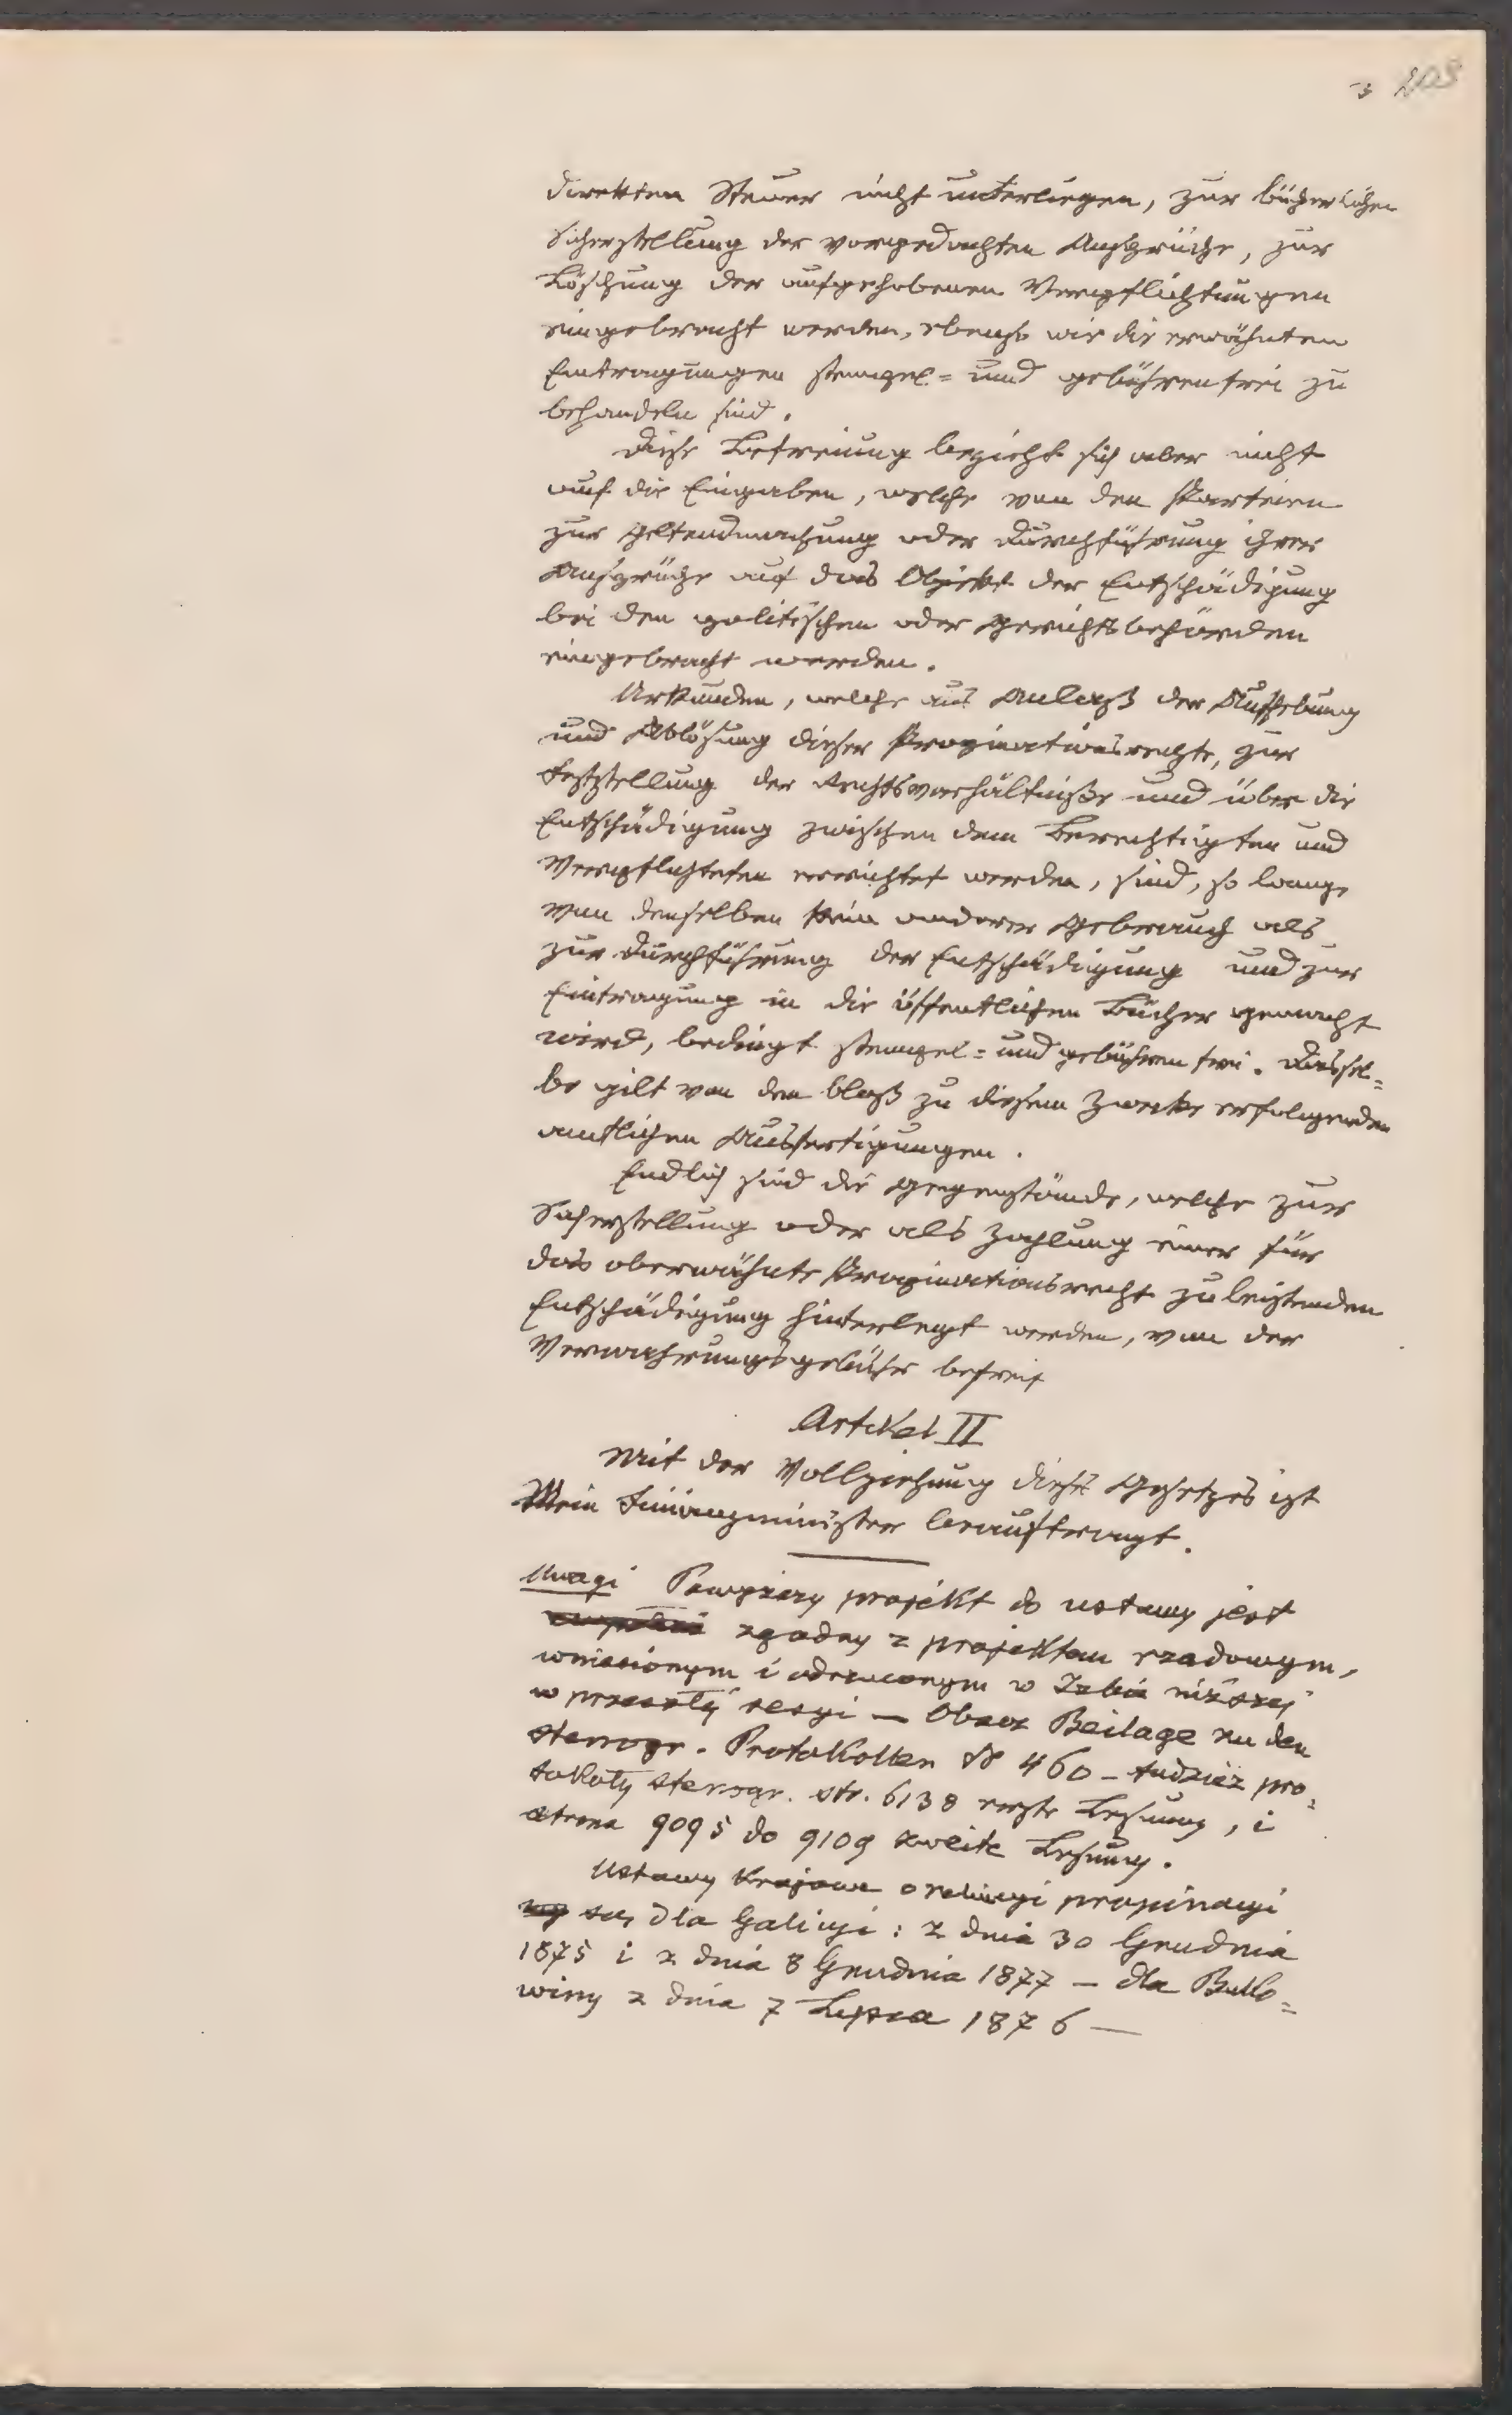 3 203
direkten Steuer nicht unterliegen, zur bücherlichen
Sicherstellung der vorgedachten Ansprüche, zur
Löschung der aufgehobenen Verpflichtungen
eingebracht werden, ebenso wie die erwähnten
Eintragungen stempel= und gebührenfrei zu
behandeln sind.
Diese Befreiung bezieht sich aber nicht
auf die Eingaben, welche von den Parteien
zur Geltendmachung oder Durchführung ihrer
Ansprüche auf das Objekt der Entschädigung
bei den politischen oder Gerichtsbehörden
eingebracht werden.
Urkunden, welche aus Anlaß der Aufhebung
und Ablösung dieser Propinationsrechte, zur
Feststellung der Rechtsverhältniße und über die
Entschädigung zwischen dem Berechtigten und
Verpflichteten errichtet werden, sind, so lange
von denselben kein anderer Gebrauch als
zur Durchführung der Entschädigung und zur
Eintragung in die öffentlichen Bücher gemacht
wird, bedingt stempel= und gebührenfrei. Dassel=
be gilt von den bloß zu diesem Zwecke erfolgenden
amtlichen Ausfertigungen.
Endlich sind die Gegenstände, welche zur
Sicherstellung oder als Zahlung einer für
das oberwähnte Propinationsrecht zu leistenden
Entschädigung hinterlegt werden, von der
Verwahrungsgebühr befreit
Artikel II
Mit der Vollziehung dieses Gesetzes ist
Mein Finanzminister beauftragt.
Uwagi Powyższy projekt do ustawy jest
zgodny z projektem rządowym,
wniesionym i odrzuconym w Izbie niższej
w przeszłej sesyi — Obacz Beilage zu den
stenogr. Protokollen № 460 – tudzież pro=
tokoły stenogr. str. 6138 erste Lesung, i
strona 9095 do 9109 zweite Lesung.
Ustawy krajowe o relucyi propinacyi
są dla Galicyi: z dnia 30 Grudnia
1875 i z dnia 8 Grudnia 1877 — dla Buko=
winy z dnia 7 Lipca 1876 —